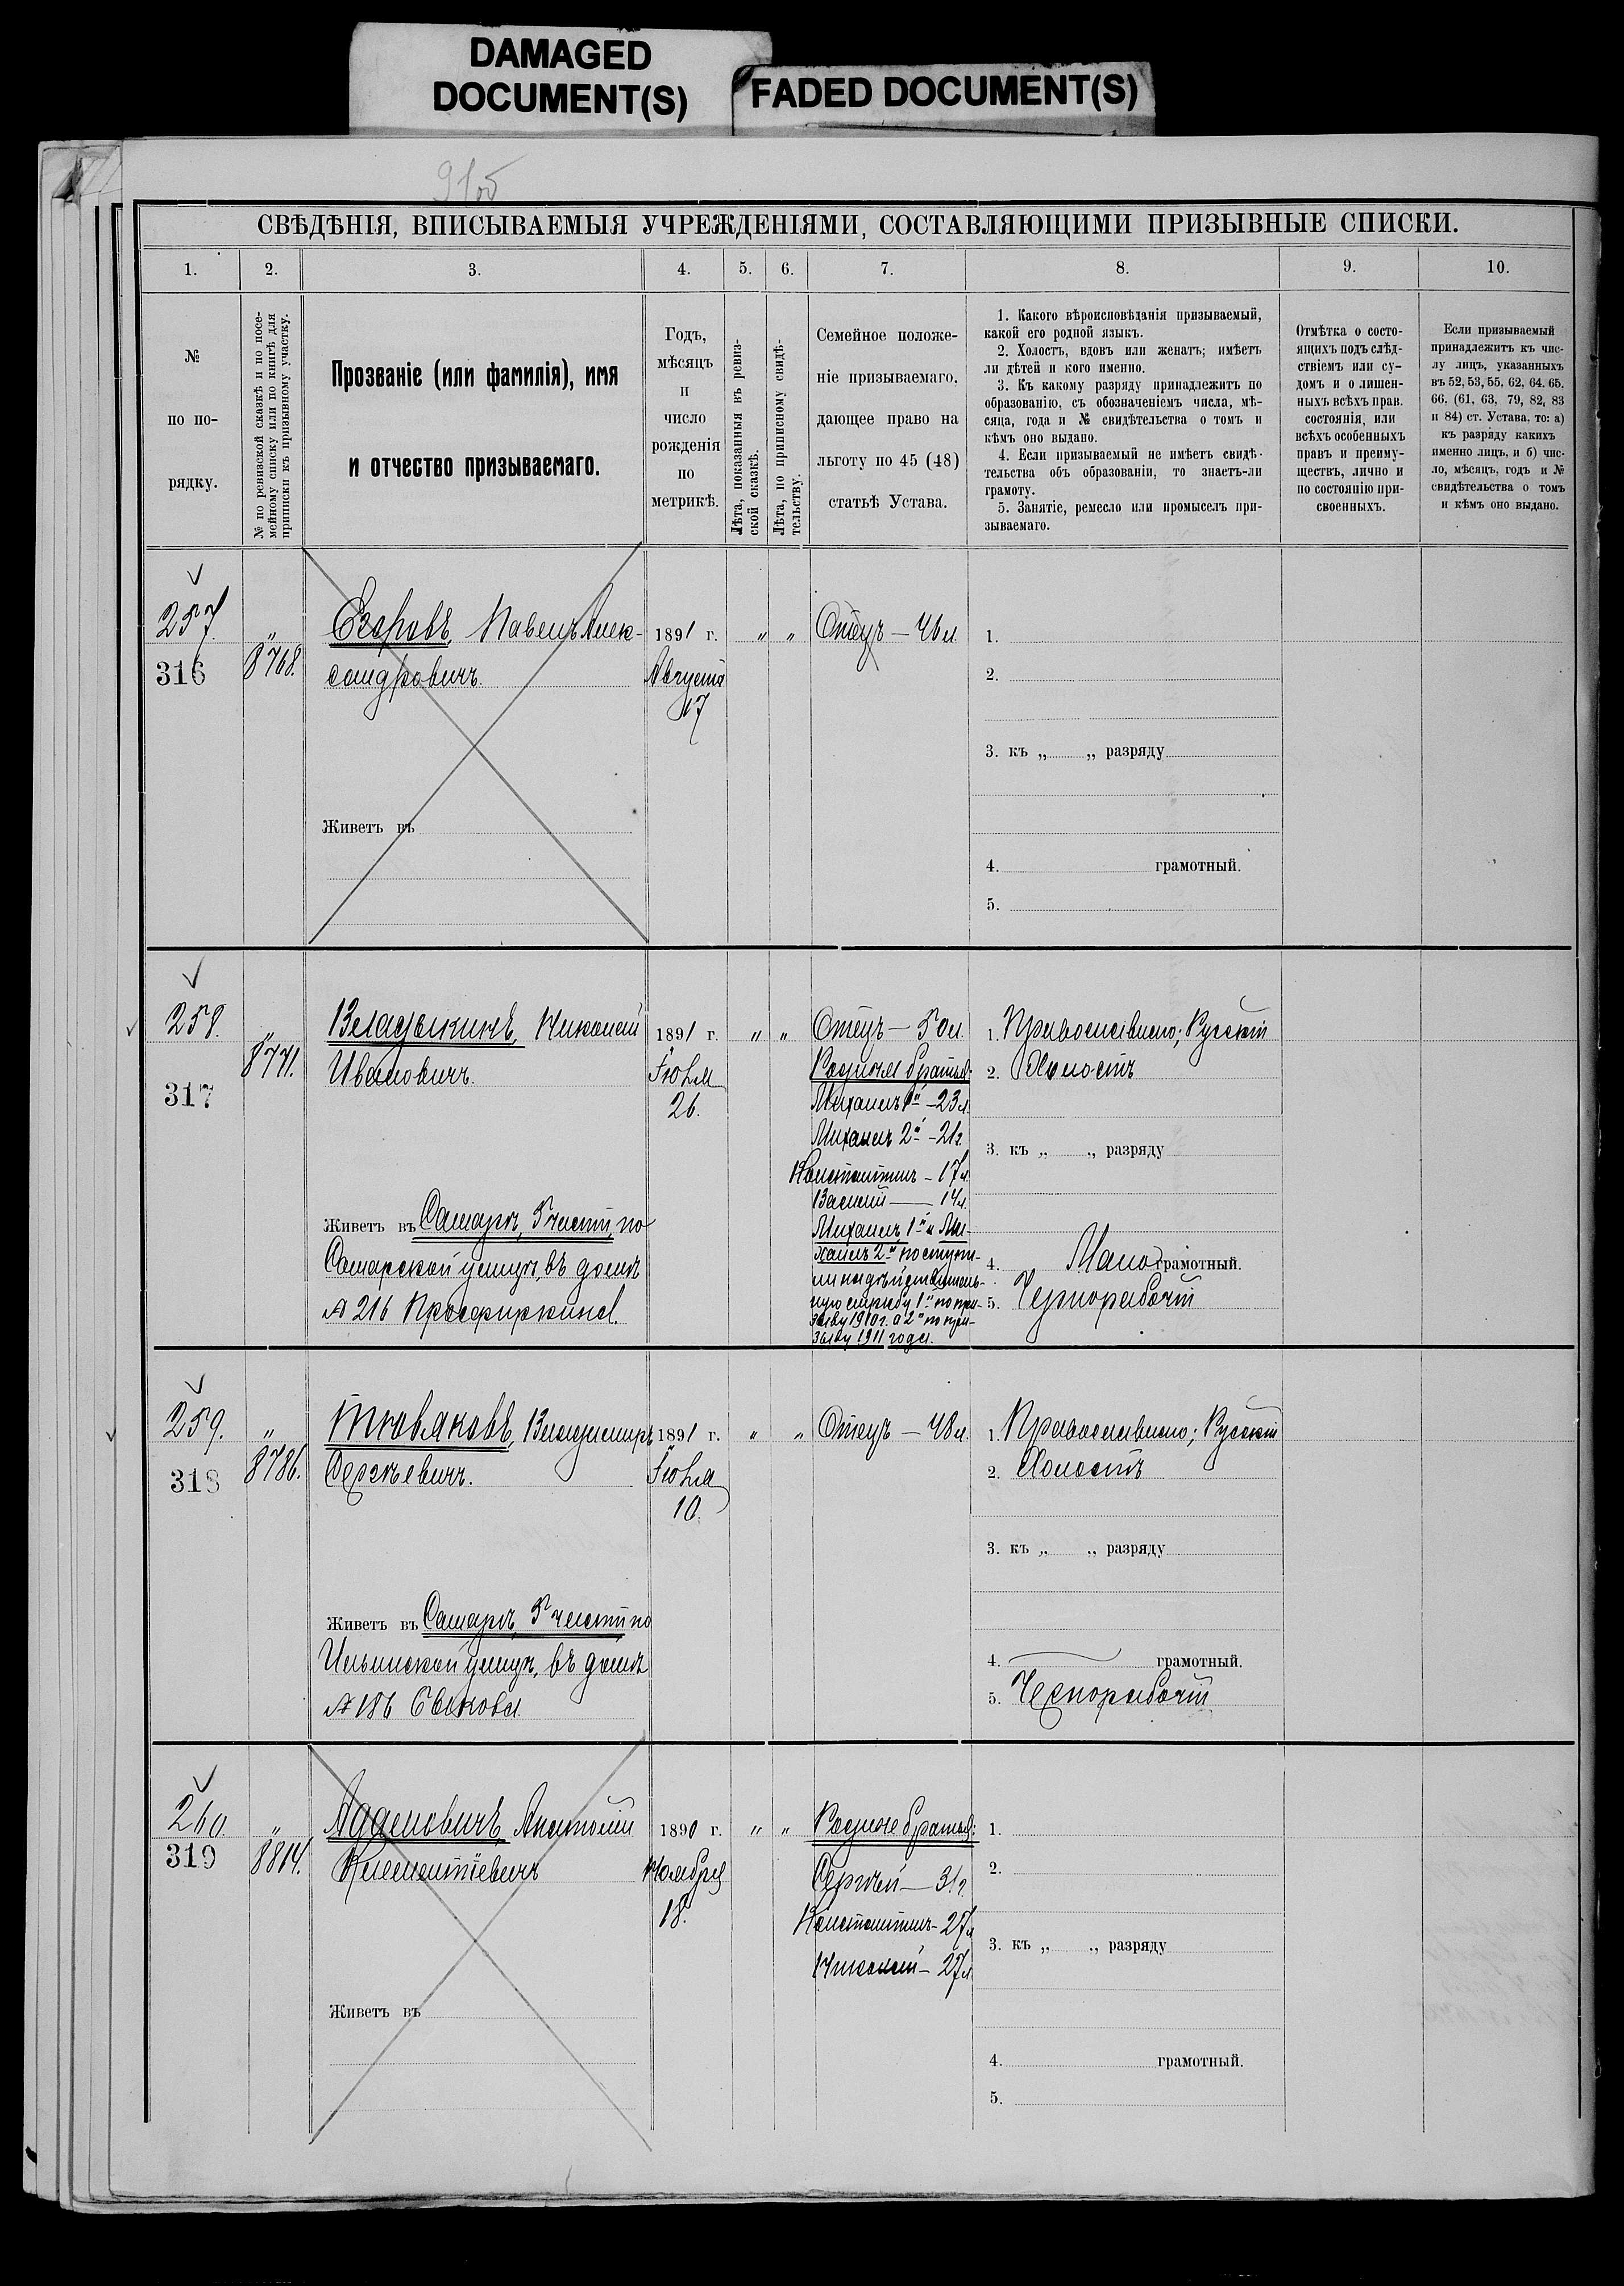 DAMAGED
DOCUMENT(S)
FADED DOCUMENT(S)
91об
СВѢДѢНІЯ, ВПИСЫВАЕМЫЯ УЧРЕЖДЕНІЯМИ, СОСТАВЛЯЮЩИМИ ПРИЗЫВНЫЕ СПИСКИ.
1. 2. 3. 4. 5. 6. 7. 8. 9. 10.
№
по по-
рядку.
№ по ревизской сказкѣ и по посе-
мейному списку или по книгѣ для
приписки къ призывному участку.
Прозваніе (или фамилія), имя
и отчество призываемаго.
Годъ,
мѣсяцъ
и
число
рожденія
по
метрикѣ.
Лѣта, показанныя въ ревиз-
ской сказкѣ.
Лѣта, по приписному свидѣ-
тельству.
Семейное положе-
ніе призываемаго,
дающее право на
льготу по 45 (48)
статьѣ Устава.
1. Какого вѣроисповѣданія призываемый,
какой его родной языкъ.
2. Холостъ, вдовъ или женатъ; имѣетъ
ли дѣтей и кого именно.
3. Къ какому разряду принадлежитъ по
образованію, съ обозначеніемъ числа, мѣ-
сяца, года и № свидѣтельства о томъ и
кѣмъ оно выдано.
4. Если призываемый не имѣетъ свидѣ-
тельства объ образованіи, то знаетъ-ли
грамоту.
5. Занятіе, ремесло или промыселъ при-
зываемаго.
Отмѣтка о состо-
ящихъ подъ слѣд-
ствіемъ или су-
домъ и о лишен-
ныхъ всѣхъ прав.
состоянія, или
всѣхъ особенныхъ
правъ и преиму-
ществъ, лично и
по состоянію при-
своенныхъ.
Если призываемый
принадлежитъ къ чис-
лу лицъ, указанныхъ
въ 52, 53, 55. 62, 64. 65.
66. (61, 63, 79, 82, 83
и 84) ст. Устава. то: а)
къ разряду какихъ
именно лицъ, и б) чис-
ло, мѣсяцъ, годъ и №
свидѣтельства о томъ
и кѣмъ оно выдано.
257.
316
„
8768.
Егоровъ, Павелъ Алек-
сандровичъ.
Живетъ въ
1891 г.
Августа
17
„ „
Отецъ — 46 л.
1.
2.
3. къ „ „ разряду
4. грамотный.
5.
258.
317
„
8771.
Владыкинъ, Николай
Ивановичъ.
Живетъ въ Самарѣ, 5 части, по
Самарской улицѣ, въ домѣ
№ 216 Просфиркина.
1891 г.
Іюля
26.
„ „
Отецъ — 50 л.
Родные братья:
Михаилъ 1й — 23 л.
Михаилъ 2й — 21 г.
Константинъ — 17 л.
Василій — 14 л.
Михаилъ 1й и Ми-
хаилъ 2й поступи-
ли на дѣйствитель-
ную службу 1й по при-
зыву 1910 г. а 2й по при-
зыву 1911 года.
1. Православнаго; Русскій
2. Холостъ
3. къ „ „ разряду
4. Малограмотный.
5. Чернорабочій
259.
318
„
8786.
Тювяковъ, Владимиръ
Сергѣевичъ.
Живетъ въ Самарѣ, 5 части по
Ильинской улицѣ, въ домѣ
№ 186 Быкова.
1891 г.
Іюля
10.
„ „
Отецъ — 48 л.
1. Православнаго; Русскій
2. Холостъ
3. къ „ „ разряду
4. грамотный.
5. Чернорабочій
260
319
„
8814.
Адамовичъ, Анатолій
Климентіевичъ
Живетъ въ
1890 г.
Ноября
18.
„ „
Родные братья:
Сергѣй — 31 г.
Константинъ — 27 л.
Николай — 27 л.
1.
2.
3. къ „ „ разряду
4. грамотный.
5.